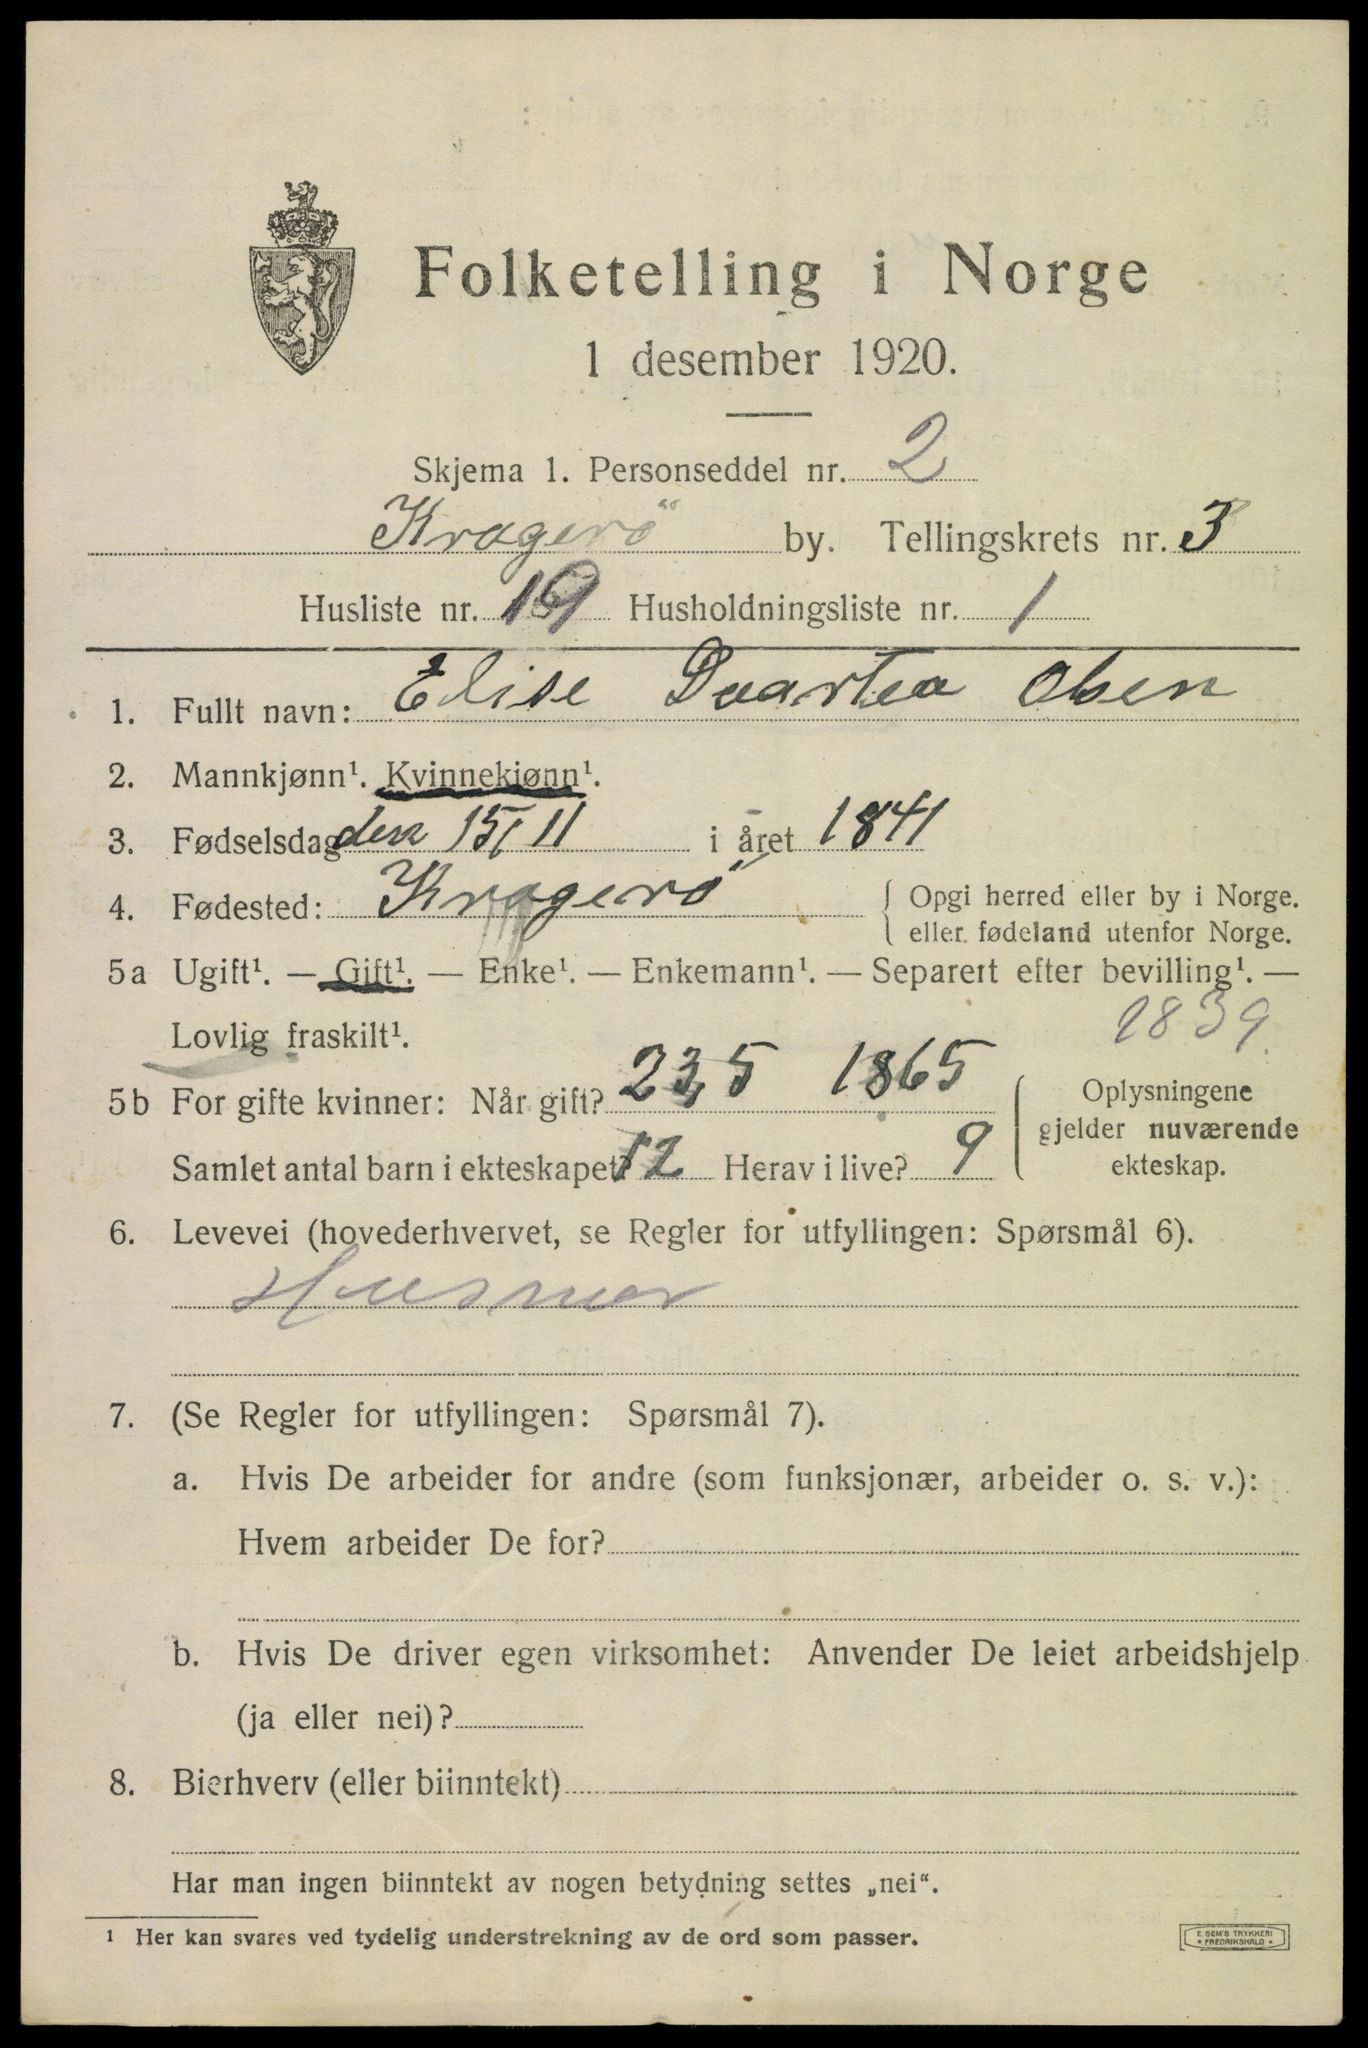 Folketelling i Norge
1 desember 1920.
Skjema 1. Personseddel nr. 2
Kragerö by. Tellingskrets nr. 3
Husliste nr. 19 Husholdningsliste nr. 1
1. Fullt navn: Elise Olsen
2. Mannkjønn¹. Kvinnekjønn¹.
3. Fødselsdag den 15/11 i året 1841
4. Fødested: Kragerö { Opgi herred eller by i Norge.
eller fødeland utenfor Norge.
5a Ugift¹. — Gift¹. — Enke¹. — Enkemann¹. — Separert efter bevilling¹. —
Lovlig fraskilt¹. 1839.
5b For gifte kvinner: Når gift? 23/5 1865
Samlet antal barn i ekteskapet? 12 Herav i live? 9
Oplysningene
gjelder nuværende
ekteskap.
6. Levevei (hovederhvervet, se Regler for utfyllingen: Spørsmål 6).
Husmor
7. (Se Regler for utfyllingen: Spørsmål 7).
a. Hvis De arbeider for andre (som funksjonær, arbeider o. s. v.):
Hvem arbeider De for?
b. Hvis De driver egen virksomhet: Anvender De leiet arbeidshjelp
(ja eller nei)?
8. Bierhverv (eller biinntekt)
Har man ingen biinntekt av nogen betydning settes „nei“.
¹ Her kan svares ved tydelig understrekning av de ord som passer.
E. SEM'S TRYKKERI
FREDRIKSHALD